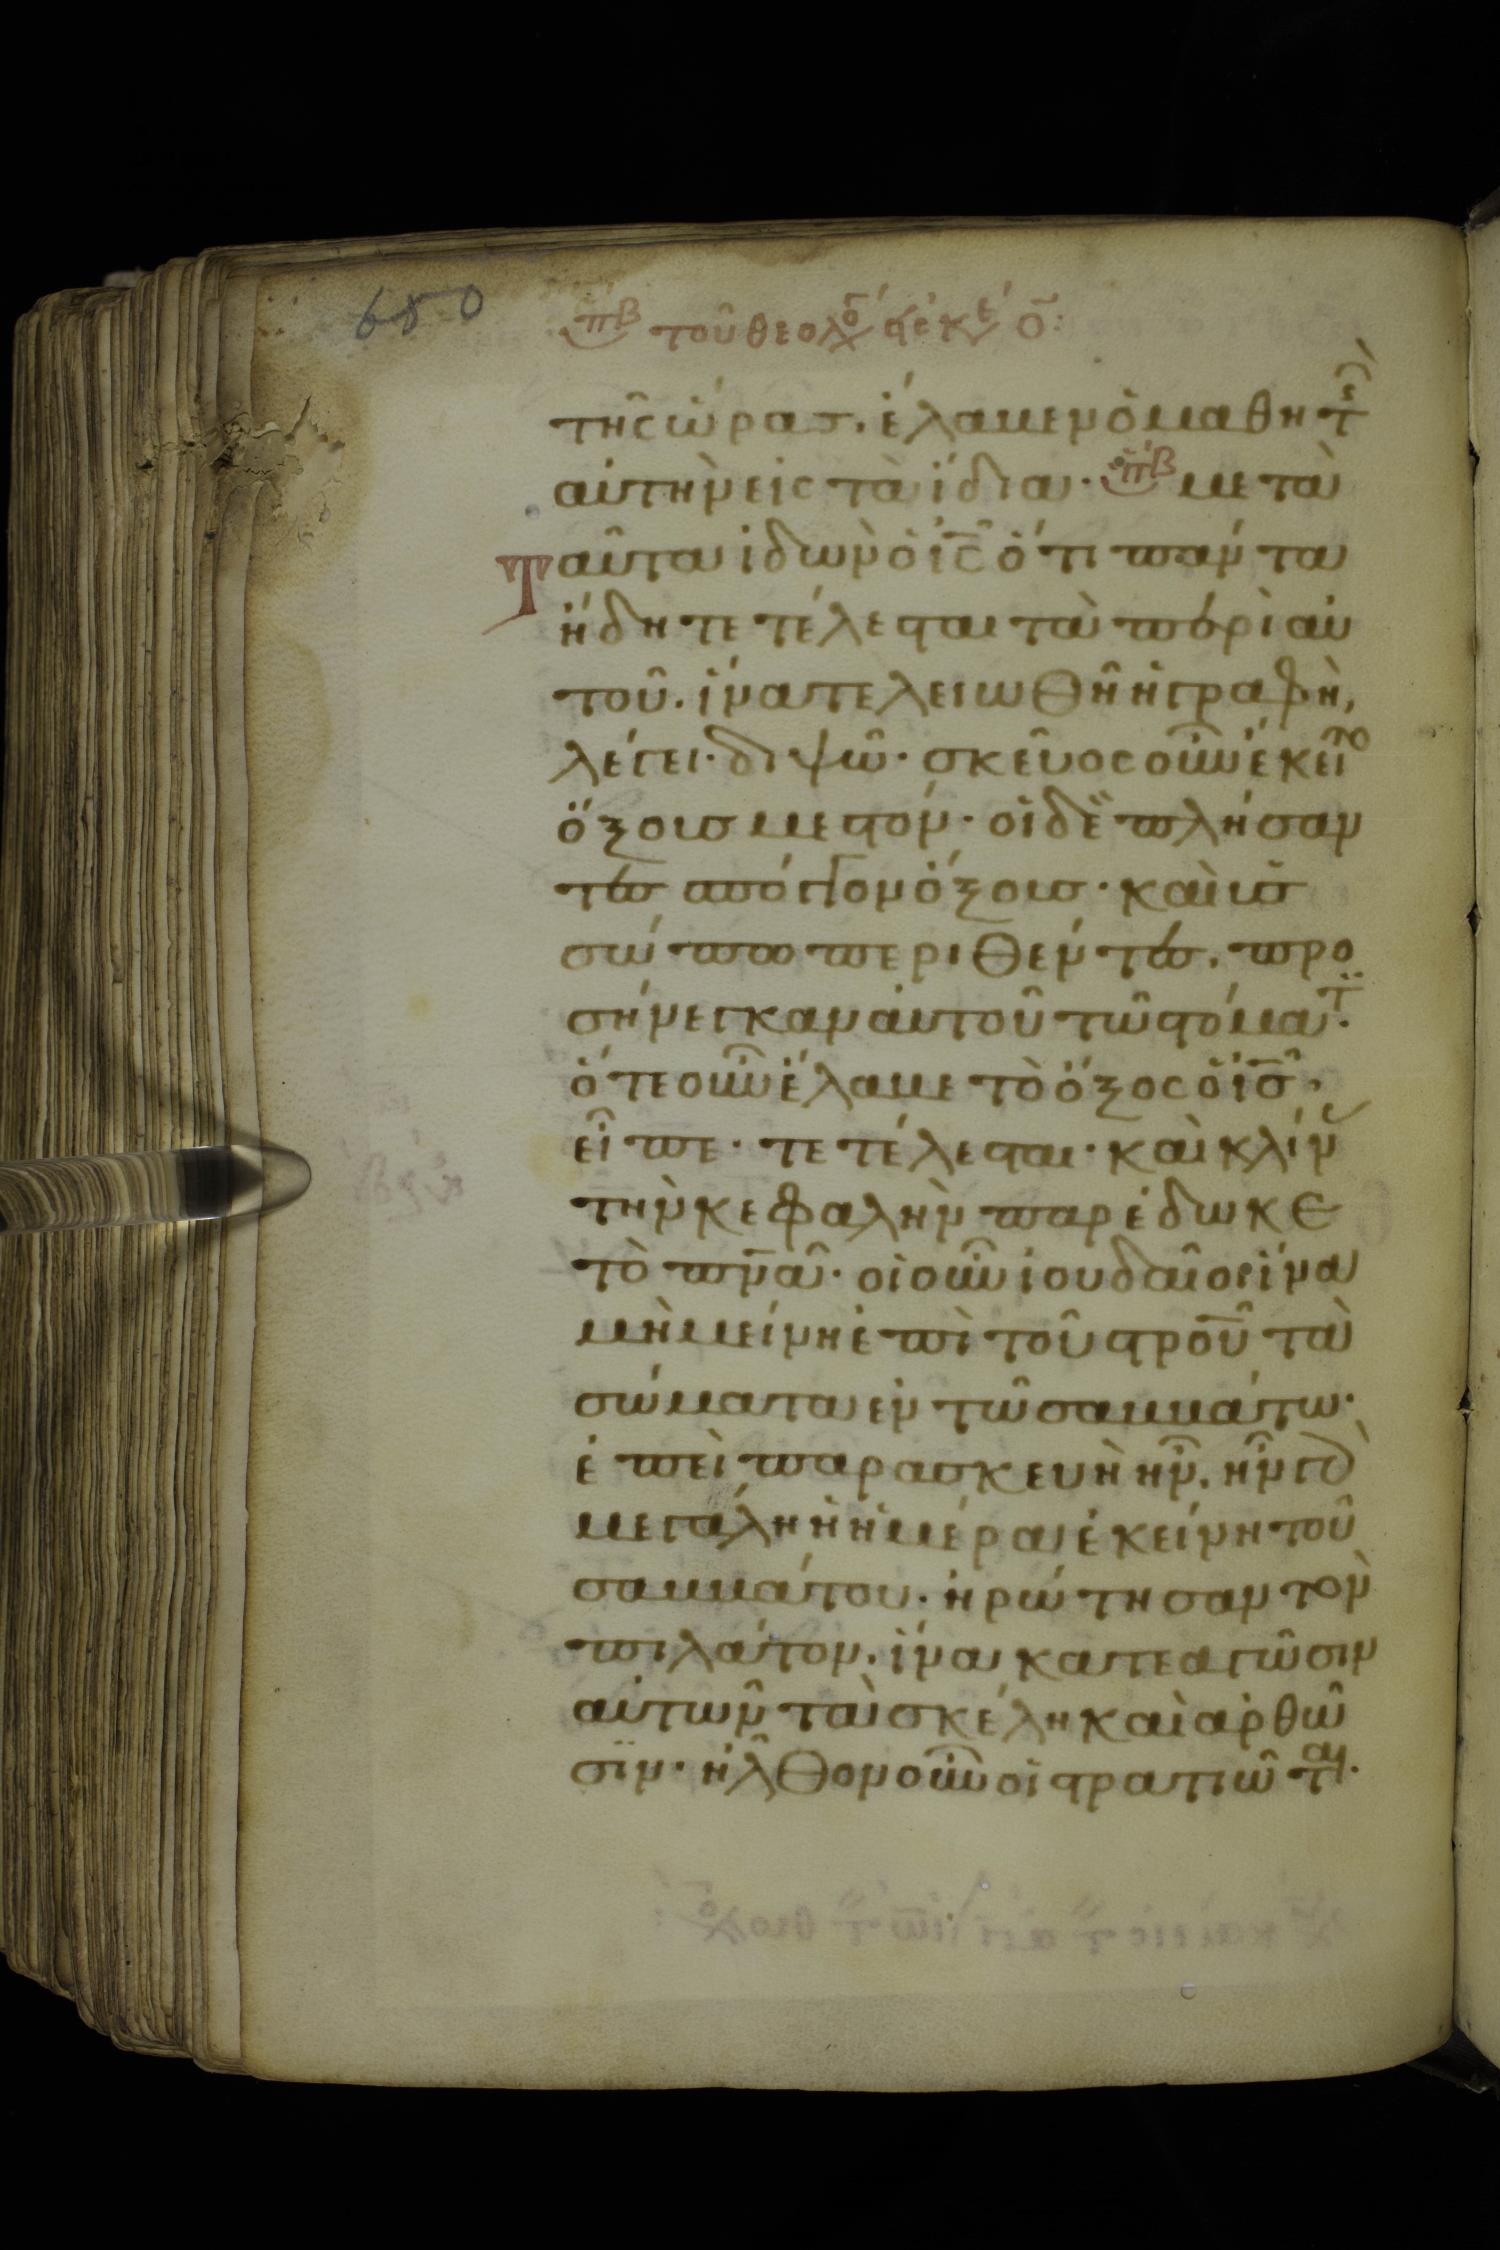 680
τοῦ θεολό
τῆς ὥρας. ἔλαβεν ὁ μαθητ
αὐτὴν εἰς τὰ ἴδια· μετὰ
Ταῦτα ἰδὼν ὁ ις ὅτι πάντα
ἤδη τετέλεσται τὰ περὶ αὐ
τοῦ. ἵνα τελειωθῆ ἡ γραφὴ,
λέγει· διψῶ· σκεῦος οὖν ἔκειτο
ὄξους μεστόν· οἱ δὲ πλήσαν
τες σπόγγον ὄξους· καὶ ὑσ
σώπω περιθέντες. προ
σήνεγκαν αὐτοῦ τῶ στόματ·
ὅτε οὖν ἔλαβε τὸ ὄξος ὁ ις.
εἶπε· τετέλεσται· καὶ κλίν
τὴν κεφαλὴν παρέδωκε
τὸ πνα· οἱ οὖν ἰουδαῖοι ἵνα
μὴ μείνη ἐπὶ τοῦ στρου τὰ
σώματα ἐν τῶ σαββάτω·
ἐπεὶ παρασκευὴ ἦν. ἦν γὰρ
μεγάλη ἡ ἡμέρα ἐκείνη τοῦ
σαββάτου· ἠρώτησαν τὸν
πιλάτον. ἵνα κατεαγῶσιν
αὐτῶν τὰ σκέλη καὶ ἀρθῶ
σϊν· ἦλθον οὖν οἱ στρατιῶται·